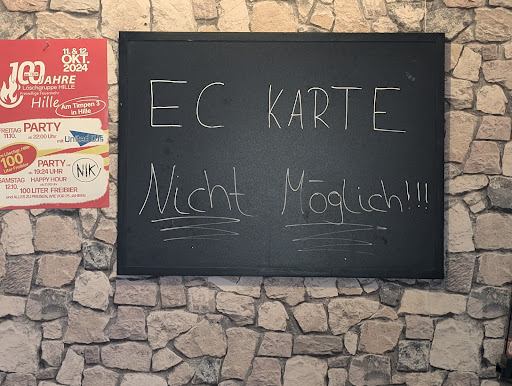 11. & 12.
OKT.
2024
100 JAHRE
Löschgruppe HILLE
Freiwillige Feuerwehr
Hille
Am Timpen 3
in Hille
FREITAG
11.10.
PARTY
ab 22:00 Uhr
mit
100
Liter Freibier
PARTY
ab 19:24 UHR
NIK
SAMSTAG
12.10.
HAPPY HOUR
100 LITER FREIBIER
EC KARTE
Nicht Möglich!!!